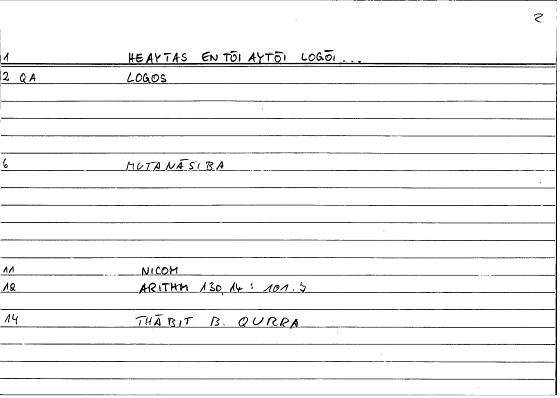 2
1 HEAYTAS EN TŌI AYTŌI LOGŌI...
2 QA LOGOS
6 MUTANĀSIBA
11 NICOM
12 ARITHM 130,14 : 101.5
14 THĀBIT B. QURRA